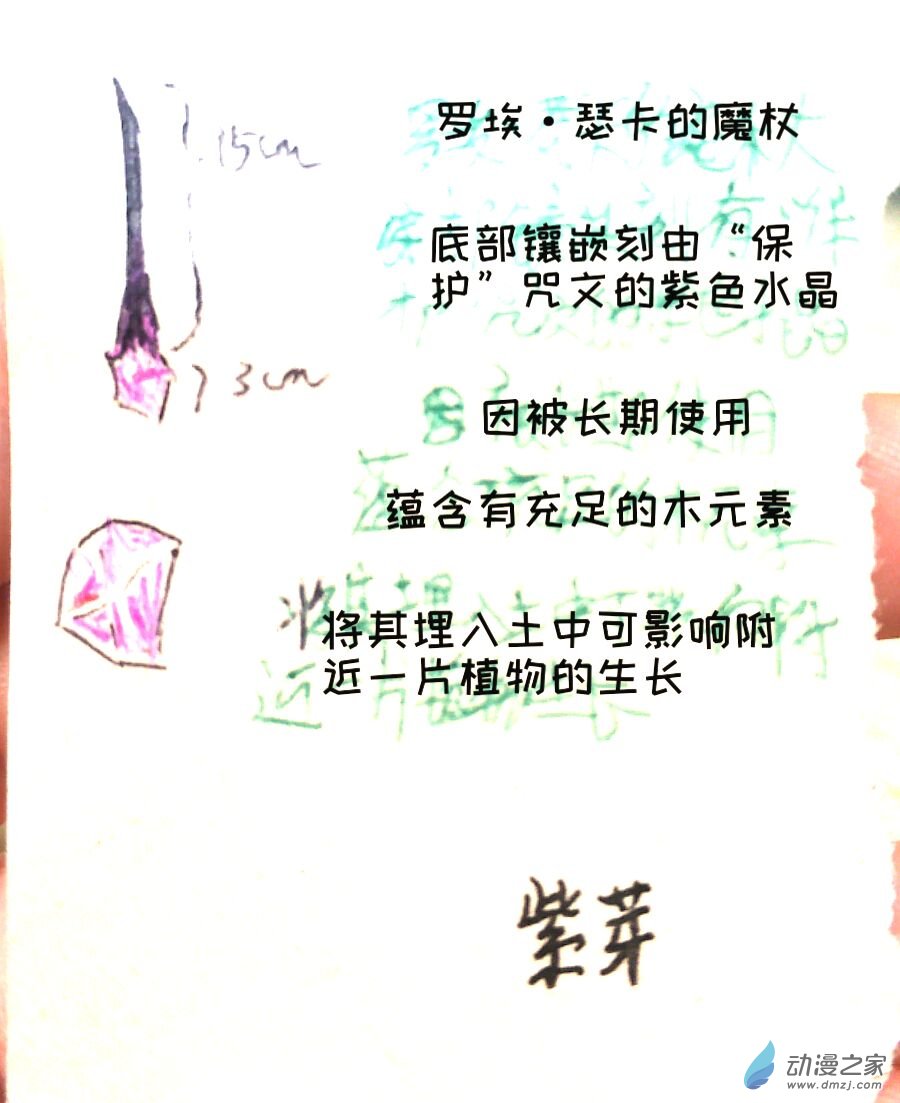 罗埃·瑟卡的魔杖
15cm
底部镶嵌刻由“保
护”咒文的紫色水晶
3cm
因被长期使用
蕴含有充足的木元素
将其埋入土中可影响附
近一片植物的生长
紫芽
动漫之家
www.dmzj.com